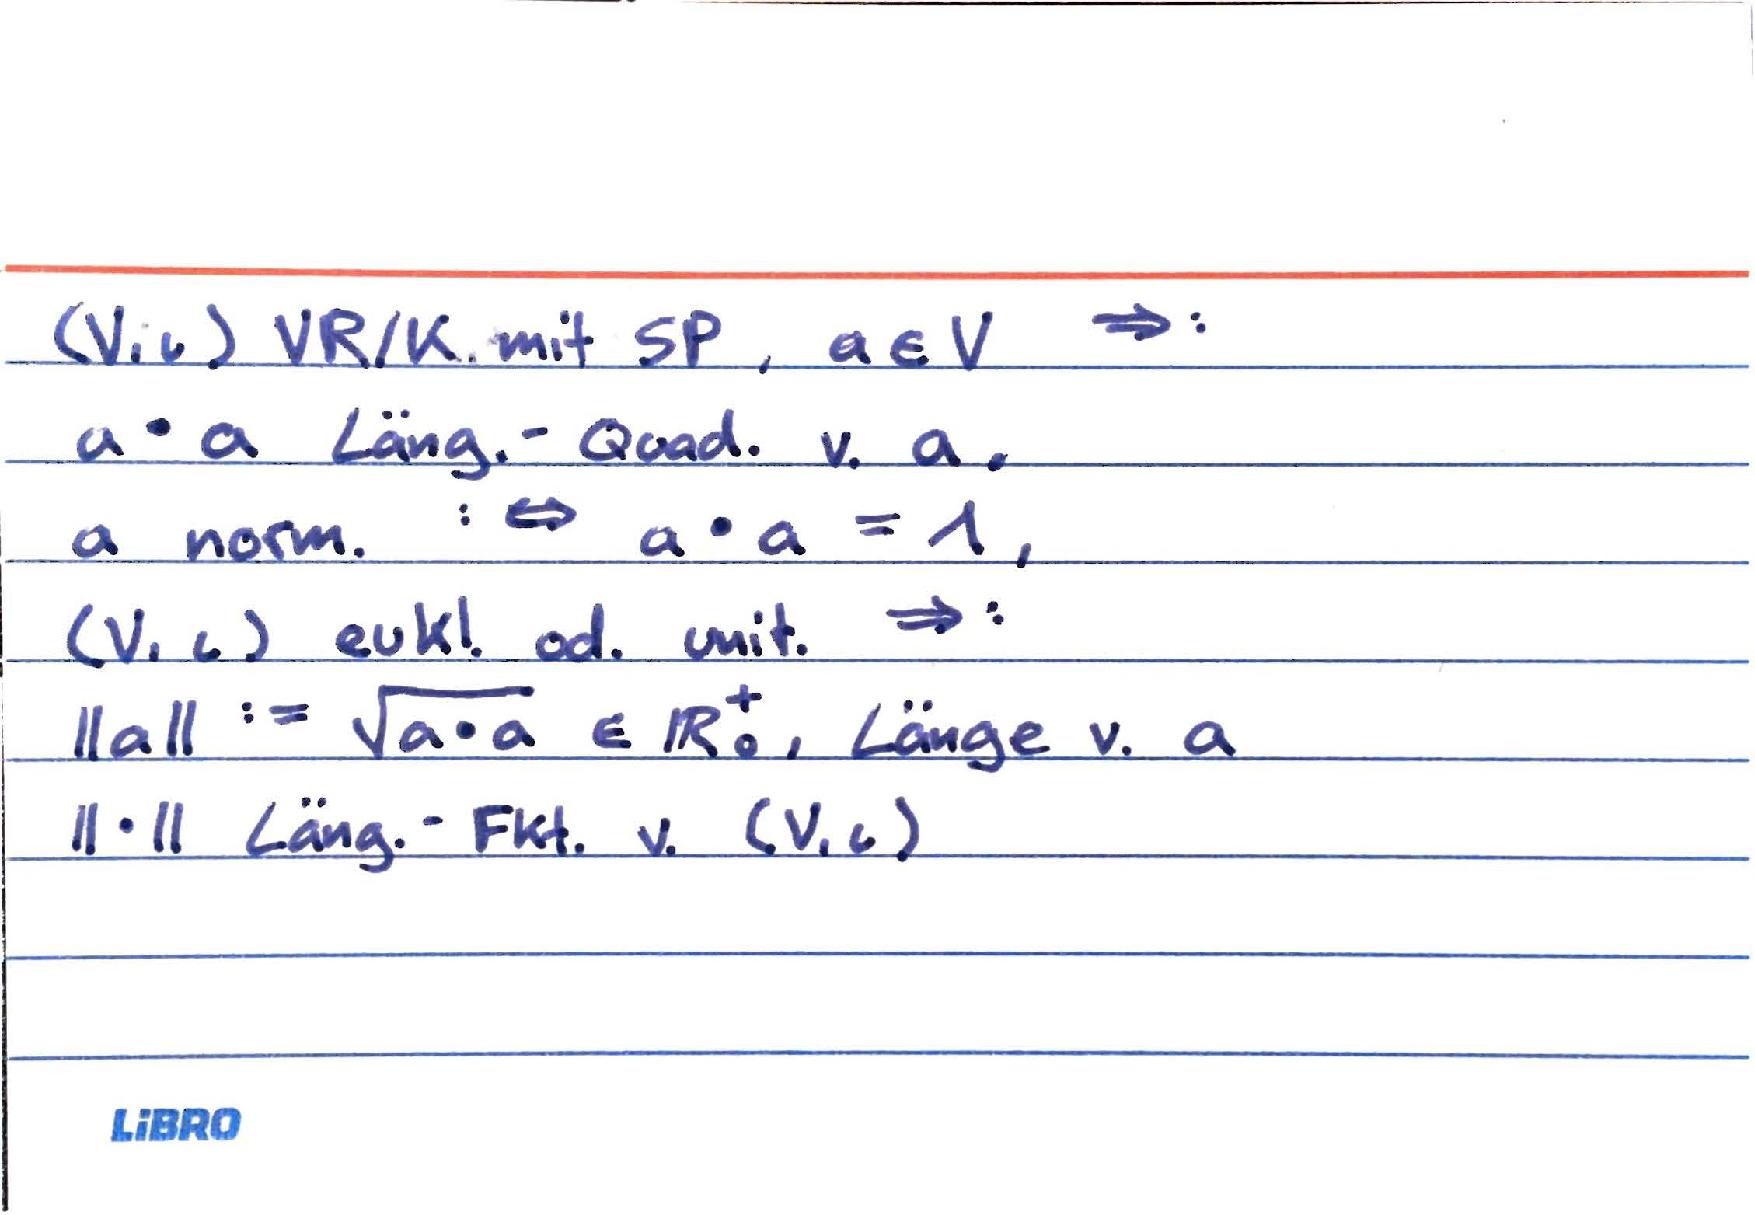 (V, ι) VR/K mit SP, a ∈ V ⇒:
a • a Läng.-Quad. v. a,
a norm. :⇔ a • a = 1,
(V, ι) eukl. od. unit. ⇒:
||a|| := √(a•a) ∈ ℝ₀⁺, Länge v. a
||•|| Läng.-Fkt. v. (V, ι)
LiBRO